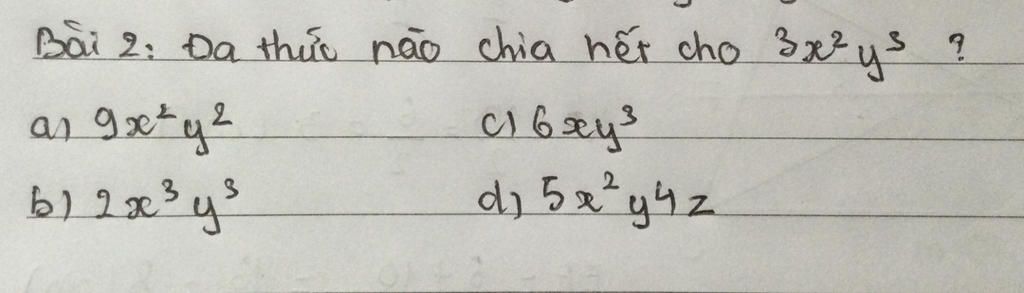 Bài 2: Đa thức nào chia hết cho 3x²y³ ?
a) 9x²y² c) 6xy³
b) 2x³y³ d) 5x²y4z